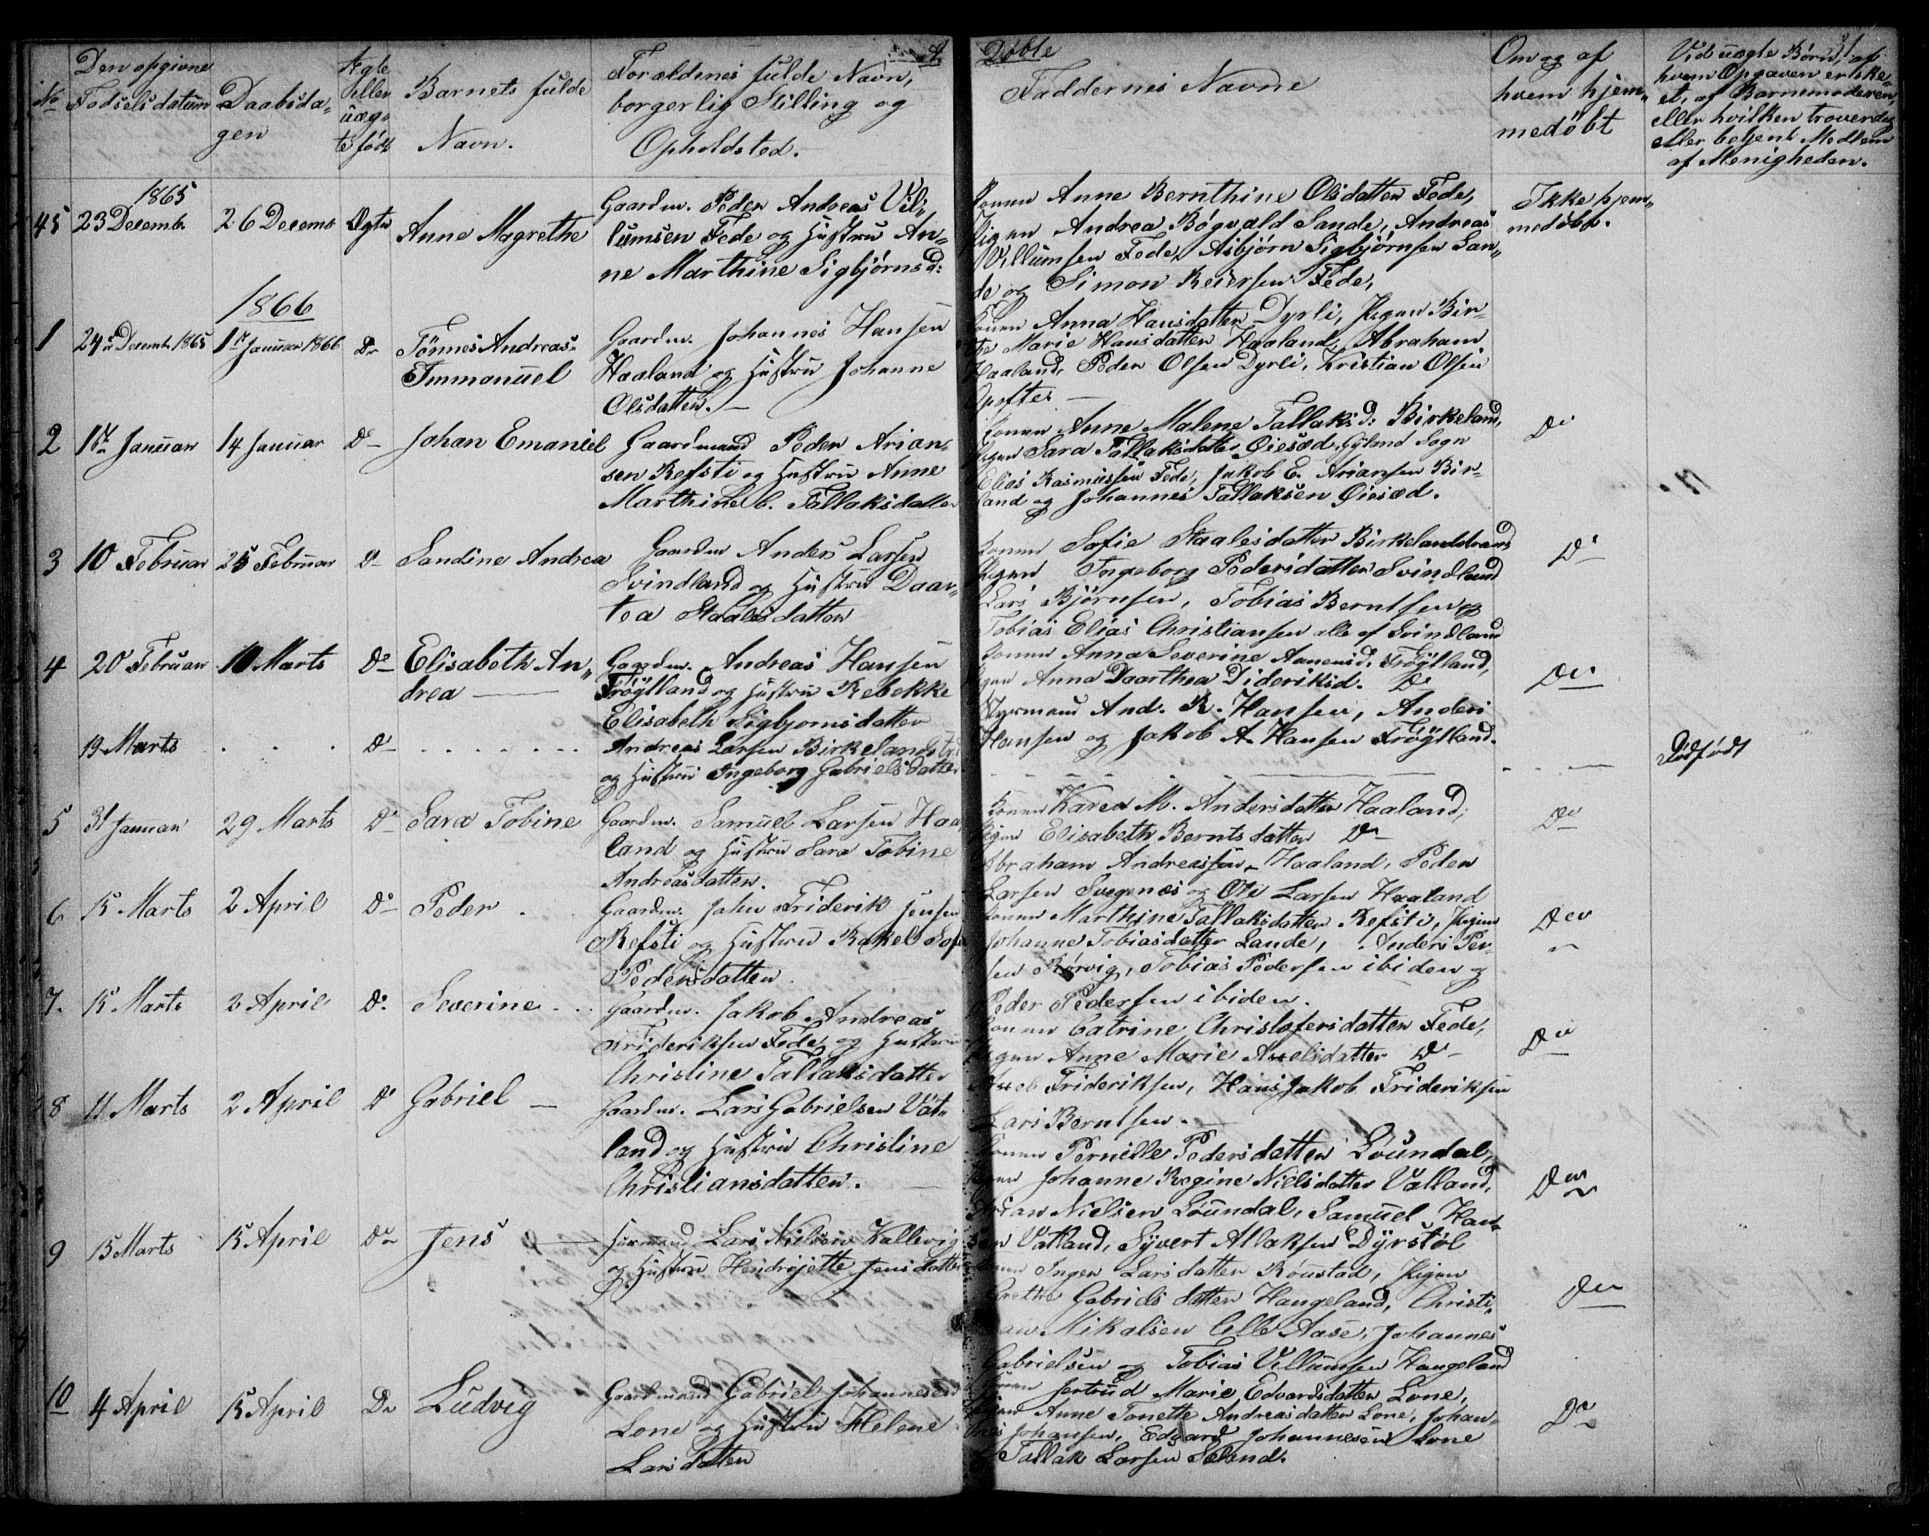 No
Den opgivne
Fødselsdatum
Daabsda-
gen
Ægte
eller
uæg-
te født
Barnets fulde
Navn.
Forældrenes fulde Navn,
borgerlig Stilling og
Opholdsted.
Døbte
Faddernes Navne
Om og af
hvem hjem-
medøbt
Ved uægte Børn, af
hvem Opgaven er ske-
et, af Barnemoderen,
eller hvilken troverdig
eller betjent Medlem
af Menigheden.
1865
45 23 Decemb. 26 Decemb Ægte Anne Magrethe
Gaardm. Peder Andreas Vil-
lumsen Fede og Hustru An-
ne Marthine Sigbjørnsd:
Konen Anne Bernthine Olsdatter Fede,
Pigen Andrea Bøgvald Sande, Andreas
Villumsen Fede, Asbjørn Sigbjørnsen San-
de og Simon Reiersen Fede,
Ikke hjem-
medøbt.
1866
1 24 Decemb. 1865 1 Januar 1866 Do Tønnes Andreas
Emmanuel
Gaardm. Johannes Hansen
Haaland og Hustru Johanne
Olsdatter. —
Konen Anna Hansdatter Dyrli, Pigen Bir-
the Marie Hansdatter Haaland, Abraham
Haaland, Peder Olsen Dyrli, Kristian Olsen
Opofte —
2 1 Januar 14 Januar Do Johan Emaniel
Gaardmand Peder Arian-
sen Refsti og Hustru Anne
Marthine C. Tallaksdatter
Konen Anne Malene Tallaksd: Birkeland,
Pigen Sara Tallaksdatter Øiesæd, Gyland Sogn
Elias Rasmussen Fede, Jakob E. Ariansen Bir-
land og Johannes Tallaksen Øiesæd.
Do
3 10 Februar 25 Februar Do Sandine Andrea
Gaardm Anders Larsen
Svindland og Hustru Daar-
tea Staalesdatter
Konen Sofie Staalesdatter Birkelandstrand
Pigen Ingeborg Pedersdatter Svindland
Lars Bjørnsen, Tobias Berntsen og
Tobias Elias Christiansen alle af Svindland
Do
4 20 Februar 10 Marts Do Elisabeth An-
drea —
Gaardm. Andreas Hansen
Frøytland og Hustru Rebekke
Elisabeth Sigbjornsdatter
Konen Anna Severine Aanensd. Frøytland,
Pigen Anna Daarthea Dideriksd. Do
Styrmand And. R. Hansen, Anders
Hansen og Jakob A. Hansen Frøytland.
Do
19 Marts Do
Andreas Larsen Birkelandst
og Hustru Ingeborg Gabrielsdatter
Dødfødt
5 31 Januar 29 Marts Do Sara Tobine
Gaardm. Samuel Larsen Haa
land og Hustru Sara Tobine
Andreasdatter.
Konen Karen M. Andersdatter Haaland,
Pigen Elisabeth Berntsdatter Do
Abraham Andreassen Haaland, Peder
Larsen Svegenæs og Ole Larsen Haaland
Do
6 15 Marts 2 April Do Peder
Gaardm. John Friderik Jensen
Refsti og Hustru Rakel Sofie
Pedersdatter
Konen Marthine Tallaksdatter Refsti, Pigen
Johanne Tobiasdatter Lande, Anders Per-
sen Rørvig, Tobias Pedersen ibiden og
Peder Pedersen ibiden.
Do
7. 15 Marts 2 April Do Severine
Gaardm. Jakob Andreas
Frideriksen Fede og Hustru
Christine Tallaksdatter
Konen Catrine Christofersdatter Fede,
Pigen Anne Marie Axelsdatter Do
Axel Frideriksen, Hans Jakob Frideriksen
Lars Berntsen.
Do
8 11 Marts 2 April Do Gabriel —
Gaardm. Lars Gabrielsen Vat-
land og Hustru Christine
Christiansdatter. —
Konen Pernille Pedersdatter Løundal,
Pigen Johanne Regine Nielsdatter Vatland,
Arian Nielsen Løundal, Samuel Han-
sen Vatland, Syvert Atlaksen Dyrstøl
Do
9 15 Marts 15 April Do Jens —
Lars Nielsen Kallevig
og Hustru Hendrijette Jensdatter
Konen Inger Larsdatter Roustad, Pigen
Grethe Gabrielsdatter Haugeland, Christi-
an Mikalsen Aase, Johannes
Gabrielsen og Tobias Villumsen Haugeland
Do
10 4 April 15 April Do Ludvig
Gaardmand Gabriel Johannesen
Lone og Hustru Helene
Larsdatter
Konen Jertrud Marie Edvardsdatter Lone,
Pigen Anne Tonette Andreasdatter Lone, Johan-
nes Johansen, Edvard Johannesen Lone
Tallak Larsen Seland.
Do